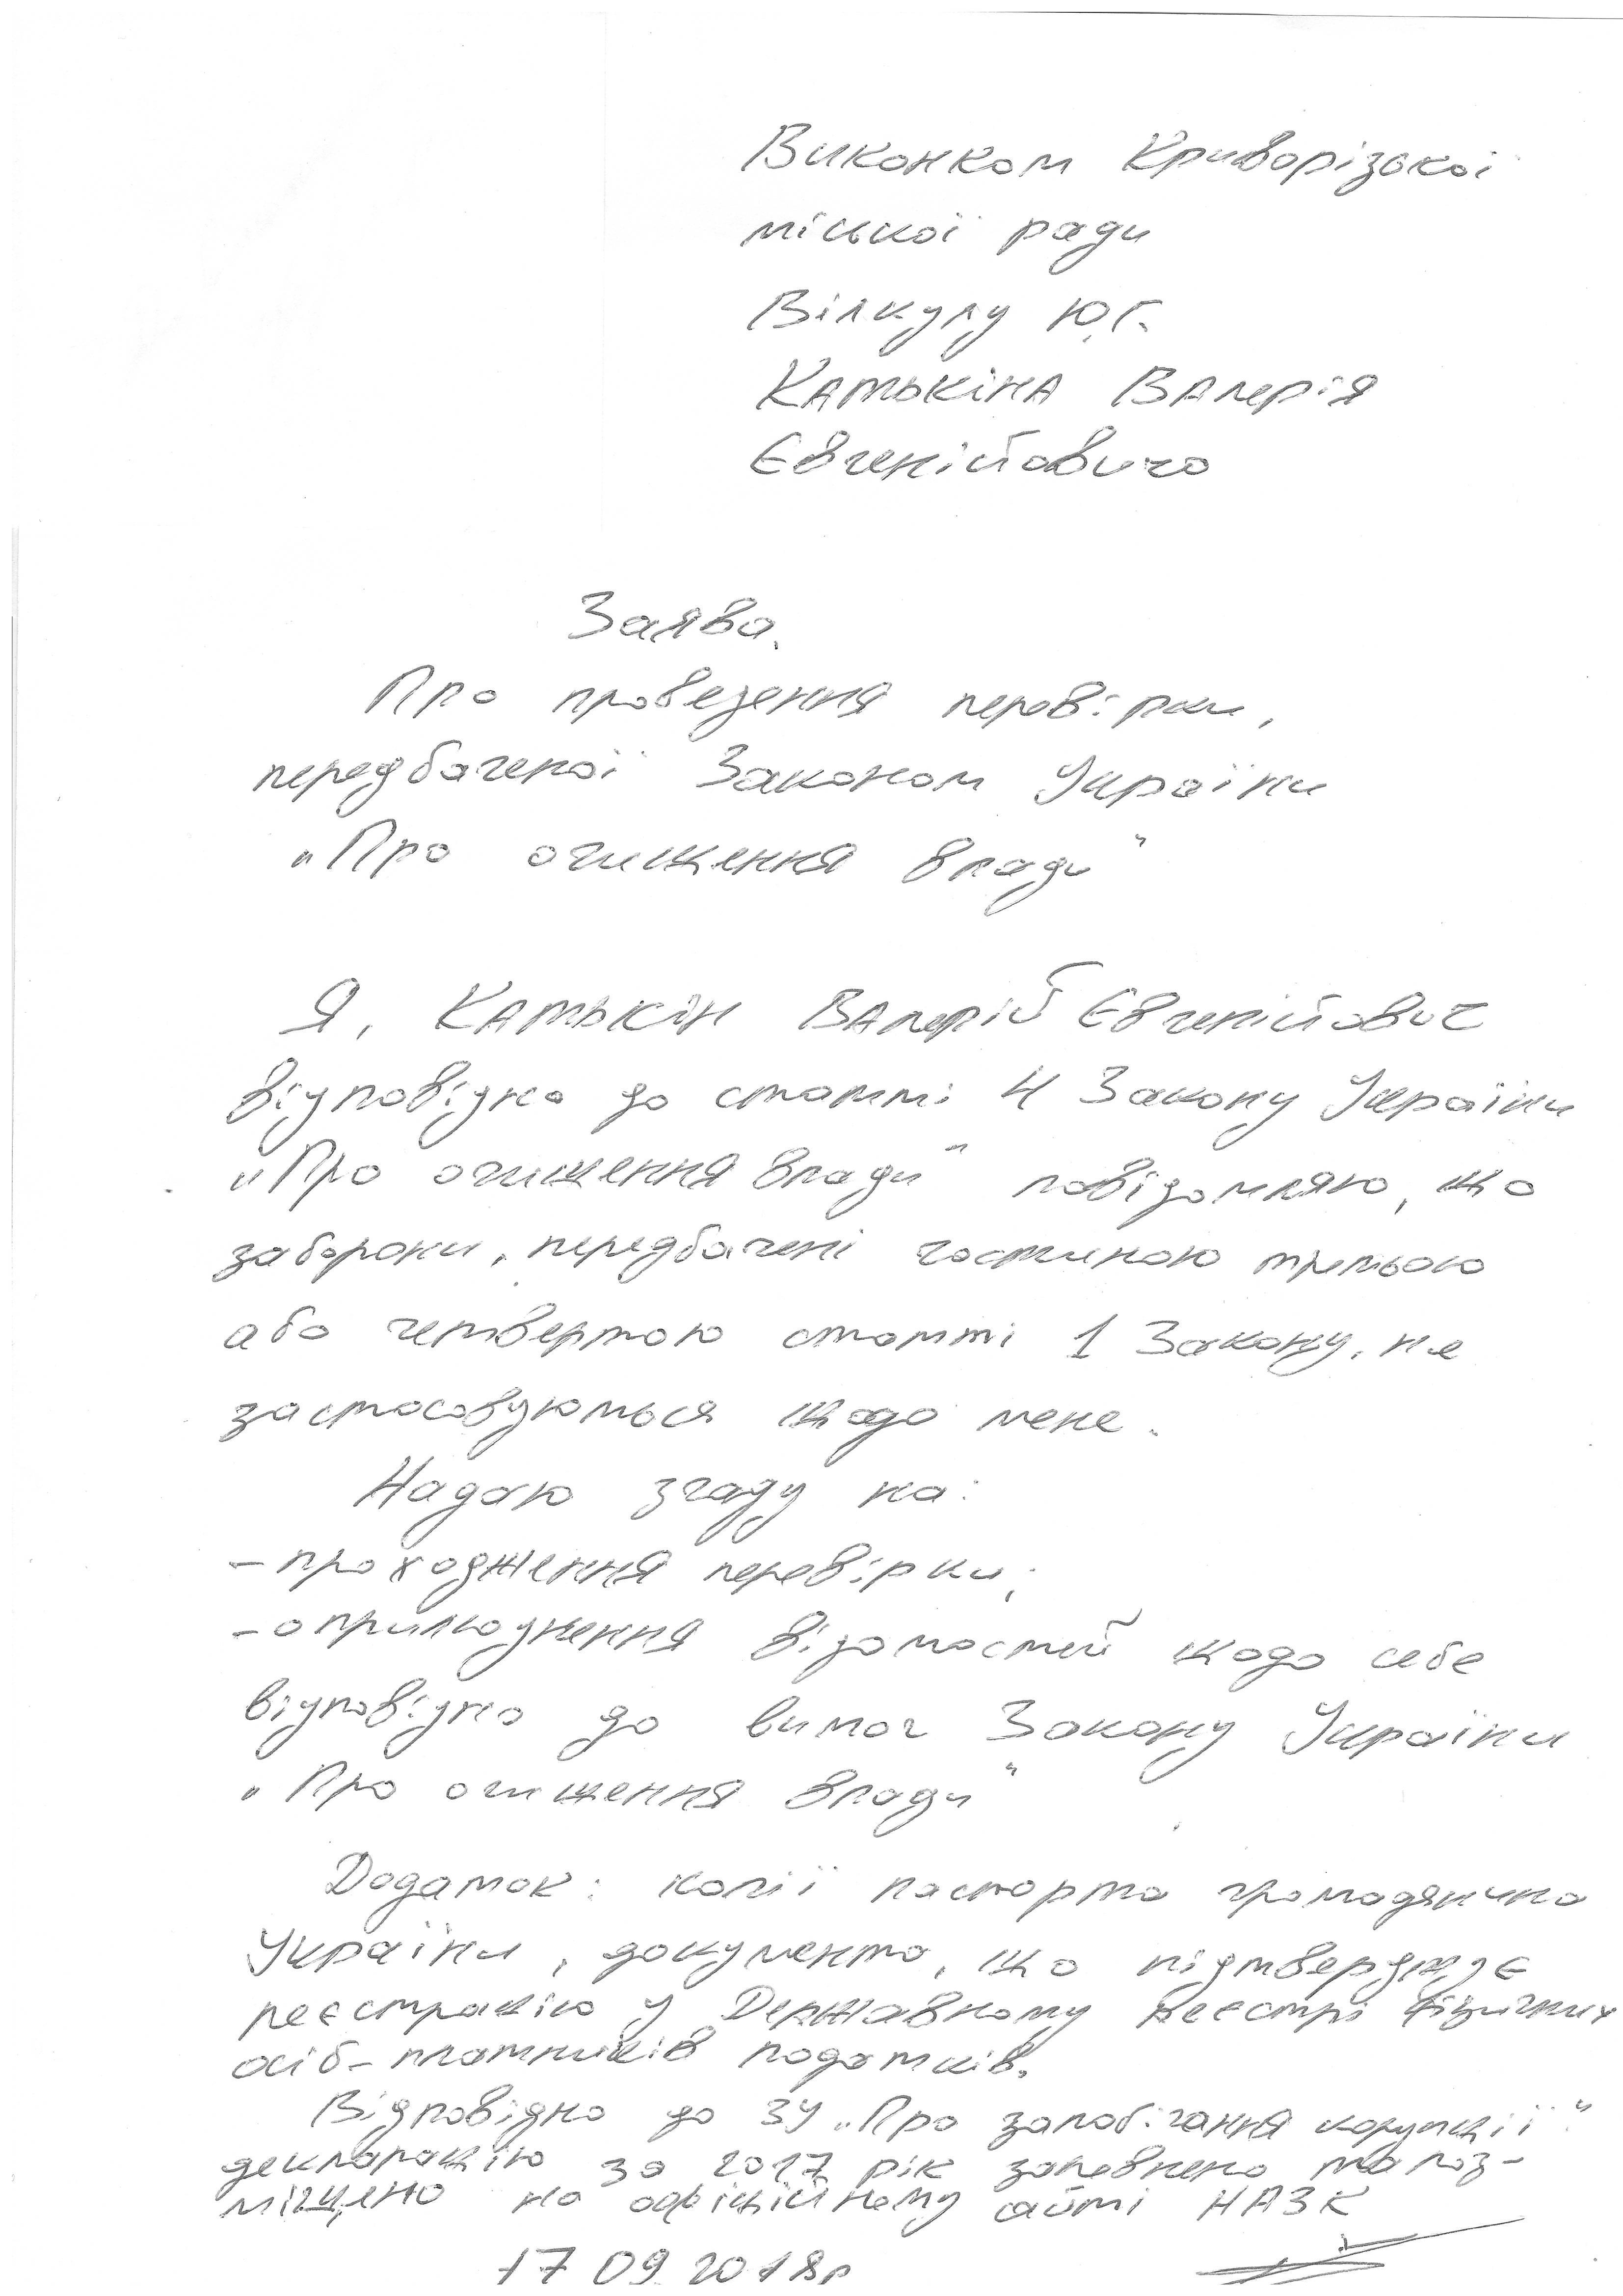 Виконком Криворізької
міської ради
Вілкулу Ю.Г.
Катькіна Валерія
Євгенійовича
Заява.
Про проведення перевірки,
передбаченої Законом України
"Про очищення влади"
Я, Катькін Валерій Євгенійович
відповідно до статті 4 Закону України
"Про очищення влади" повідомляю, що
заборони, передбачені частиною третьою
або четвертою статті 1 Закону, не
застосовуються щодо мене.
Надаю згоду на:
- проходження перевірки;
- оприлюднення відомостей щодо себе
відповідно до вимог Закону України
"Про очищення влади"
Додаток: копії паспорта громадянина
України, документа, що підтверджує
реєстрацію у Державному реєстрі фізичних
осіб-платників податків.
Відповідно до ЗУ "Про запобігання корупції"
декларацію за 2017 рік заповнено та роз-
міщено на офіційному сайті НАЗК
17 09. 2018р